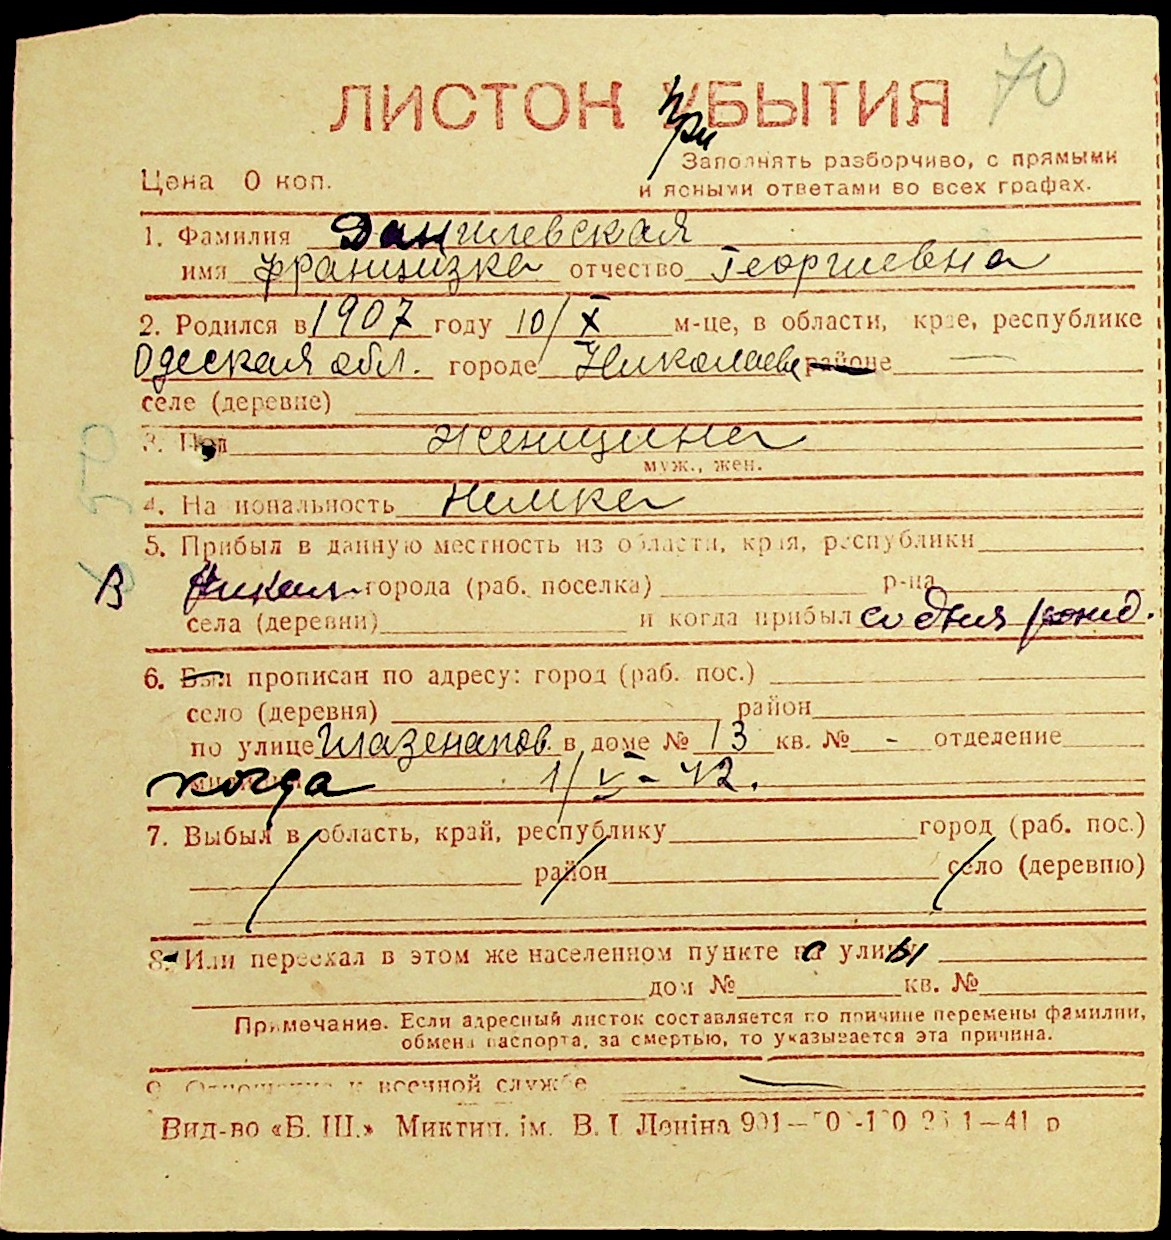 70
ЛИСТОК УБЫТИЯ
при
Заполнять разборчиво, с прямыми
Цена 0 коп.
и ясными ответами во всех графах.
1. Фамилия Данилевская
имя Францизка отчество Георгиевна
2. Родился в 1907 году 10/X м-це, в области, крае, республике
Одеская обл. городе Николаеве районе —
селе (деревне)
3. Пол женщина
муж., жен.
4. Национальность немка
5. Прибыл в данную местность из области, края, республики
В города (раб. поселка) р-на
села (деревни) и когда прибыл со дня рожд.
6. Был прописан по адресу: город (раб. пос.)
село (деревня) район
по улице Глазенапов. в доме № 13 кв. № - отделение
когда 1/V - 42.
7. Выбыл в область, край, республику город (раб. пос.)
район село (деревню)
8. Или переехал в этом же населенном пункте с улицы
дом № кв. №
Примечание. Если адресный листок составляется по причине перемены фамилии,
обмена паспорта, за смертью, то указывается эта причина.
9. Отношение к военной службе —
Вид-во «Б. Ш.» Миктип. ім. В. І Леніна